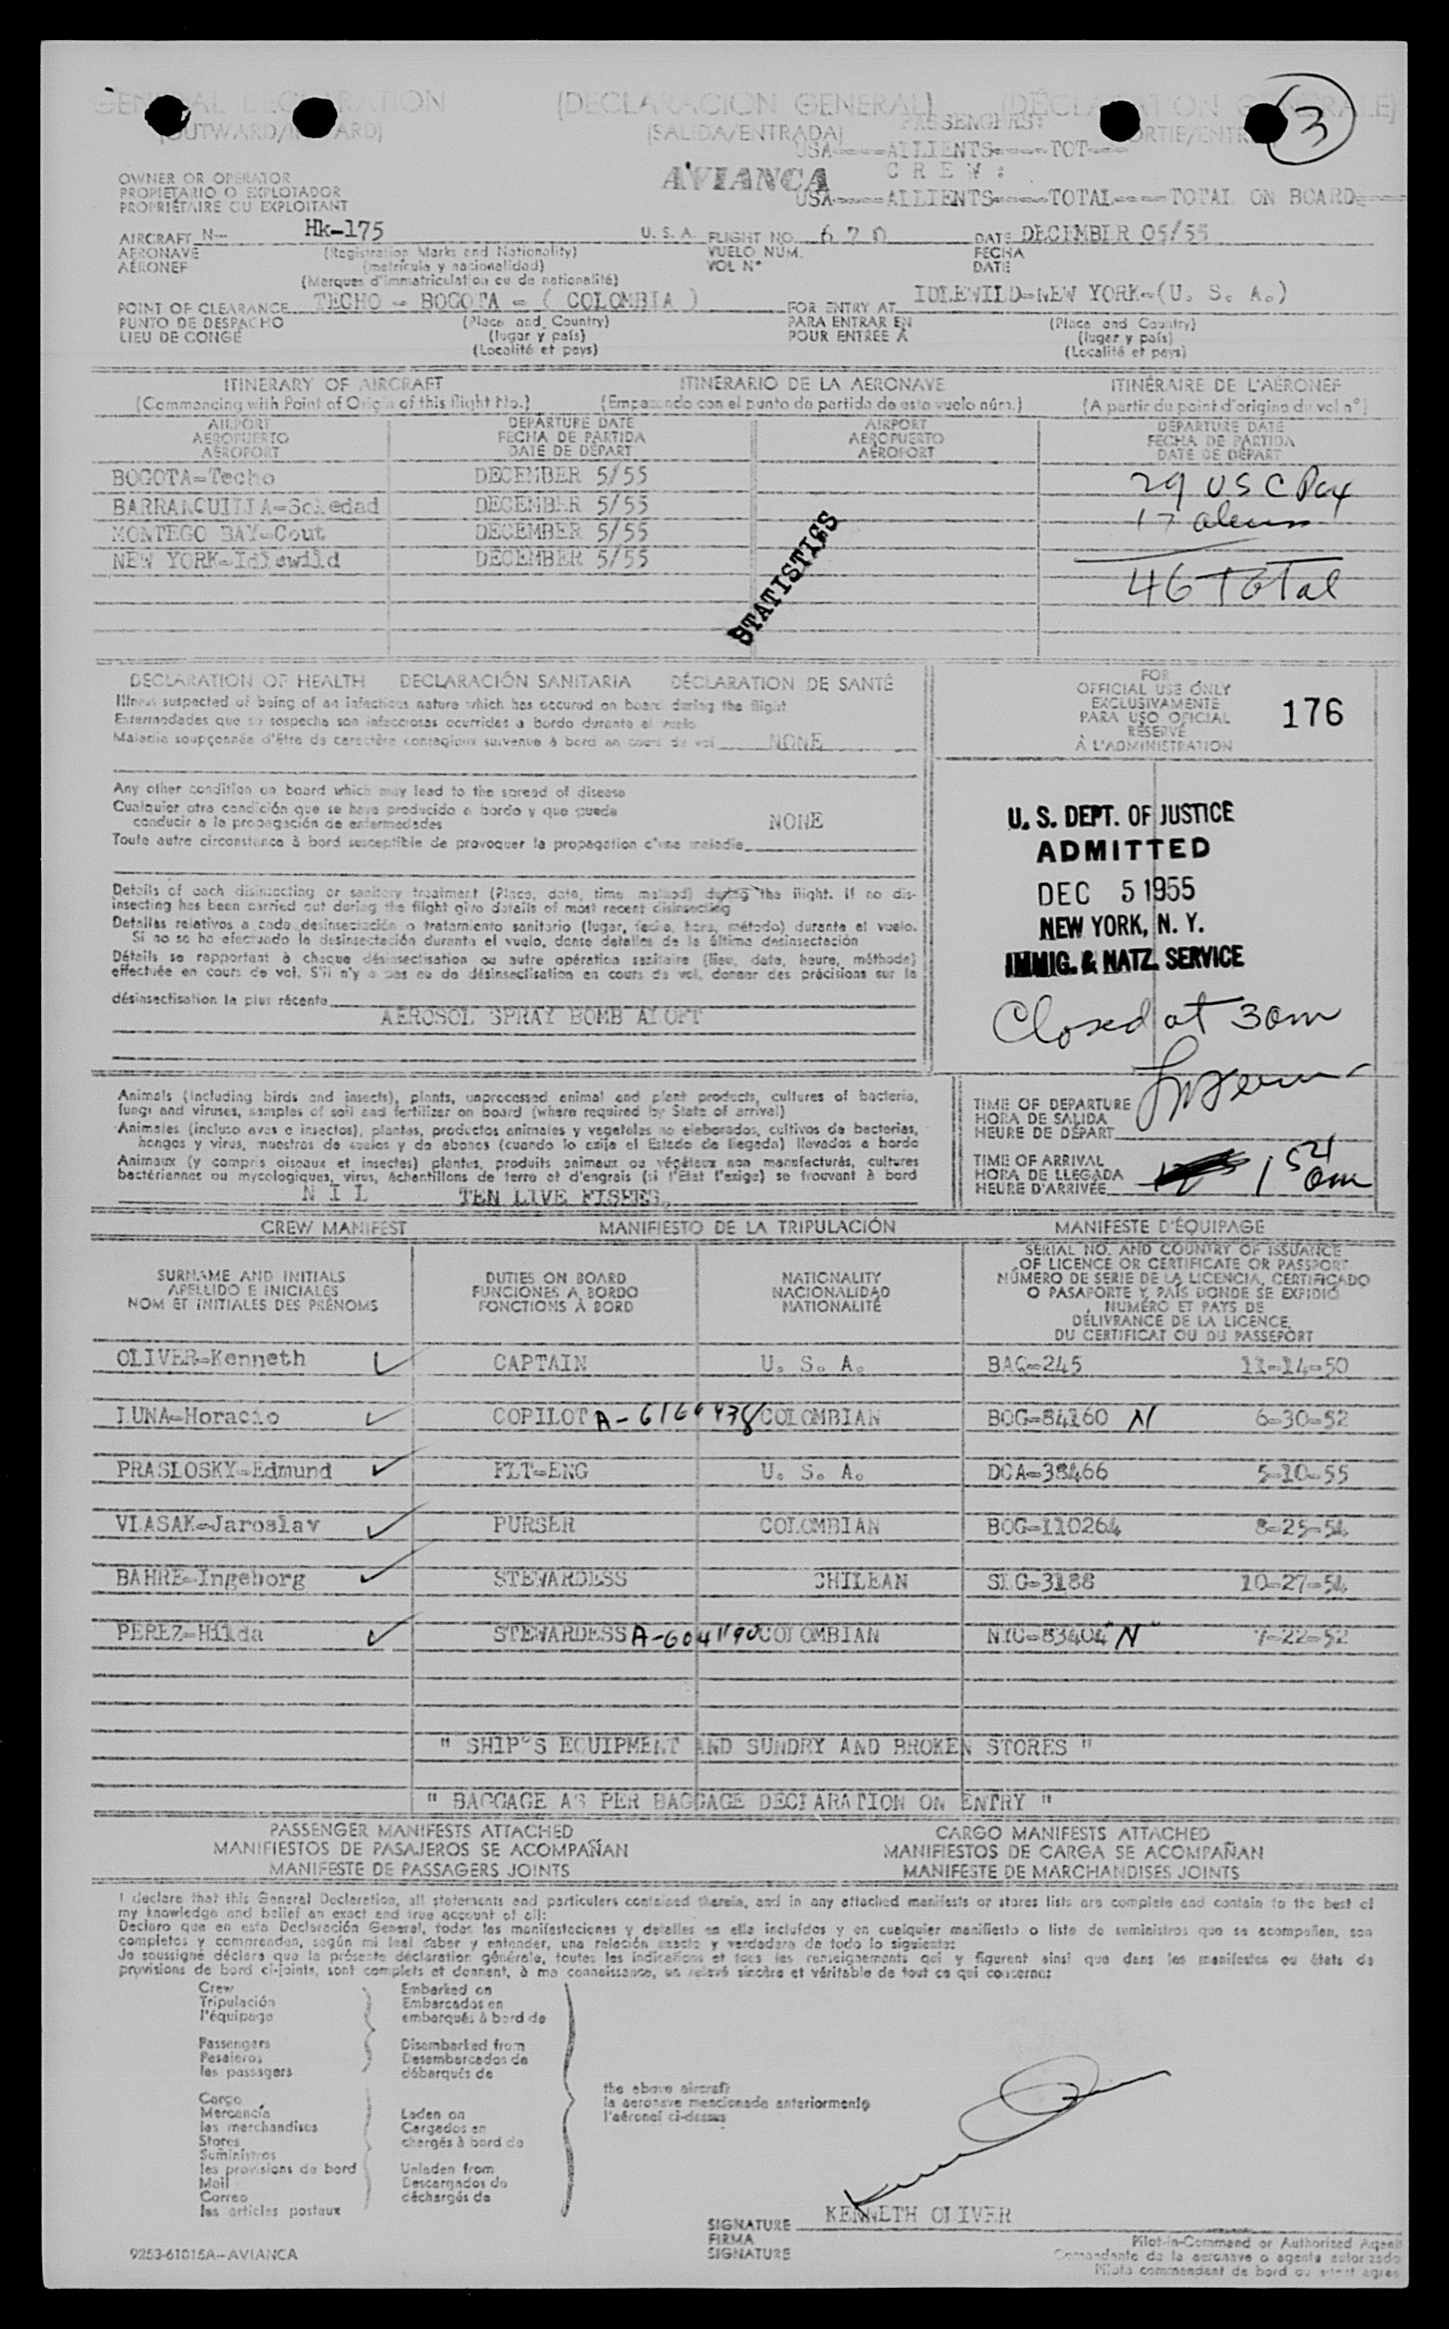 GENERAL DECLARATION (DECLARACION GENERAL) (DÉCLARATION GÉNÉRALE)
(OUTWARD/INWARD) (SALIDA/ENTRADA) (SORTIE/ENTRÉE)
3
PASSENGERS:
USA----ALLIENTS-----TOT---
OWNER OR OPERATOR
PROPIETARIO O EXPLOTADOR
PROPRIÉTAIRE OU EXPLOITANT
AVIANCA
C R E W :
USA----ALLIENTS-----TOTAL----TOTAL ON BOARD----
AIRCRAFT N-- Hk-175 U. S. A. FLIGHT NO. 670 DATE DECEMBER 05/55
AERONAVE (Registration Marks and Nationality) VUELO NUM. FECHA
AÉRONEF (matrícula y nacionalidad) VOL Nº DATE
(Marques d'immatriculation ou de nationalité)
POINT OF CLEARANCE TECHO - BOGOTA - ( COLOMBIA ) FOR ENTRY AT IDLEWILD-NEW YORK-(U. S. A.)
PUNTO DE DESPACHO (Place and Country) PARA ENTRAR EN (Place and Country)
LIEU DE CONGÉ (lugar y país) POUR ENTRÉE À (lugar y país)
(Localité et pays) (Localité et pays)
ITINERARY OF AIRCRAFT ITINERARIO DE LA AERONAVE ITINÉRAIRE DE L'AÉRONEF
(Commencing with Point of Origin of this flight No.) (Empezando con el punto de partida de este vuelo núm.) (A partir du point d'origine du vol nº)
AIRPORT DEPARTURE DATE AIRPORT DEPARTURE DATE
AEROPUERTO FECHA DE PARTIDA AEROPUERTO FECHA DE PARTIDA
AÉROPORT DATE DE DÉPART AÉROPORT DATE DE DÉPART
BOGOTA-Techo DECEMBER 5/55 29 USC Pax
BARRANQUILLA-Soledad DECEMBER 5/55 17 aliens
MONTEGO BAY-Cout DECEMBER 5/55
NEW YORK-Idlewild DECEMBER 5/55 46 Total
STATISTICS
DECLARATION OF HEALTH DECLARACIÓN SANITARIA DÉCLARATION DE SANTÉ
Illness suspected of being of an infectious nature which has occured on board during the flight
Enfermedades que se sospecha son infecciosas ocurridas a bordo durante el vuelo
Maladie soupçonnée d'être de caractère contagieux survenue à bord au cours du vol NONE
Any other condition on board which may lead to the spread of disease
Cualquier otra condición que se haya producido a bordo y que pueda
conducir a la propagación de enfermedades NONE
Toute autre circonstance à bord susceptible de provoquer la propagation d'une maladie
Details of each disinsecting or sanitary treatment (Place, date, time method) during the flight. If no dis-
insecting has been carried out during the flight give details of most recent disinsecting
Detalles relativos a cada desinsectación o tratamiento sanitario (lugar, fecha, hora, método) durante el vuelo.
Si no se ha efectuado la desinsectación durante el vuelo, dense detalles de la última desinsectación
Détails se rapportant à chaque désinsectisation ou autre opération sanitaire (lieu, date, heure, méthode)
effectuée en cours de vol. S'il n'y a pas eu de désinsectisation en cours de vol, donner des précisions sur la
désinsectisation la plus récente
AEROSOL SPRAY BOMB ALOFT
FOR
OFFICIAL USE ONLY
EXCLUSIVAMENTE
PARA USO OFICIAL
RÉSERVÉ
À L'ADMINISTRATION
176
U. S. DEPT. OF JUSTICE
ADMITTED
DEC 5 1955
NEW YORK, N. Y.
IMMIG. & NATZ. SERVICE
Closed at 3 am
Animals (including birds and insects), plants, unprocessed animal and plant products, cultures of bacteria,
fungi and viruses, samples of soil and fertilizer on board (where required by State of arrival)
Animales (incluso aves e insectos), plantas, productos animales y vegetales no eleborados, cultivos de bacterias,
hongos y virus, muestras de suelos y de abonos (cuando lo exija el Estado de llegada) llevados a bordo
Animaux (y compris oiseaux et insectes) plantes, produits animaux ou végétaux non manufacturés, cultures
bactériennes ou mycologiques, virus, échantillons de terre et d'engrais (si l'État l'exige) se trouvant à bord
N I L TEN LIVE FISHES.
TIME OF DEPARTURE
HORA DE SALIDA
HEURE DE DÉPART
TIME OF ARRIVAL
HORA DE LLEGADA
HEURE D'ARRIVÉE 1 54 am
CREW MANIFEST MANIFIESTO DE LA TRIPULACIÓN MANIFESTE D'ÉQUIPAGE
SURNAME AND INITIALS
APELLIDO E INICIALES
NOM ET INITIALES DES PRÉNOMS
DUTIES ON BOARD
FUNCIONES A BORDO
FONCTIONS À BORD
NATIONALITY
NACIONALIDAD
NATIONALITÉ
SERIAL NO. AND COUNTRY OF ISSUANCE
OF LICENCE OR CERTIFICATE OR PASSPORT
NÚMERO DE SERIE DE LA LICENCIA, CERTIFICADO
O PASAPORTE Y PAÍS DONDE SE EXPIDIÓ
NUMÉRO ET PAYS DE
DÉLIVRANCE DE LA LICENCE,
DU CERTIFICAT OU DU PASSEPORT
OLIVER-Kenneth CAPTAIN U. S. A. BAQ-245 11-14-50
LUNA-Horacio COPILOT A-6169438 COLOMBIAN BOG-84160 N 6-30-52
PRASLOSKY-Edmund FLT-ENG U. S. A. DCA-38466 5-10-55
VLASAK-Jaroslav PURSER COLOMBIAN BOG-110264 8-25-54
BAHRE-Ingeborg STEWARDESS CHILEAN SLG-3188 10-27-54
PEREZ-Hilda STEWARDESS A-6041190 COLOMBIAN NYC-83404 "N" 7-22-52
" SHIP'S EQUIPMENT AND SUNDRY AND BROKEN STORES "
" BAGGAGE AS PER BAGGAGE DECLARATION ON ENTRY "
PASSENGER MANIFESTS ATTACHED CARGO MANIFESTS ATTACHED
MANIFIESTOS DE PASAJEROS SE ACOMPAÑAN MANIFIESTOS DE CARGA SE ACOMPAÑAN
MANIFESTE DE PASSAGERS JOINTS MANIFESTE DE MARCHANDISES JOINTS
I declare that this General Declaration, all statements and particulers contained therein, and in any attached manifests or stores lists are complete and contain to the best of
my knowledge and belief an exact and true account of all:
Declaro que en esta Declaración General, todas las manifestaciones y detalles en ella incluídos y en cualquier manifiesto o lista de suministros que se acompañan, son
completos y comprenden, según mi leal saber y entender, una relación exacta y verdadera de todo lo siguiente:
Je soussigné déclare que la présente déclaration générale, toutes les indications et tous les renseignements qui y figurent ainsi que dans les manifestes ou états de
provisions de bord ci-joints, sont complets et donnent, à ma connaissance, un relevé sincère et véritable de tout ce qui concerne:
Crew
Tripulación
l'équipage
Embarked on
Embarcados en
embarqués à bord de
Passengers
Pasajeros
les passagers
Disembarked from
Desembarcados de
débarqués de
the above aircraft
la aeronave mencionada anteriormente
l'aéronef ci-dessus
Cargo
Mercancía
les marchandises
Stores
Suministros
les provisions de bord
Mail
Correo
les articles postaux
Laden on
Cargados en
chargés à bord de
Unladen from
Descargados de
déchargés de
KENNETH OLIVER
SIGNATURE
FIRMA
SIGNATURE
Pilot-in-Command or Authorized Agent
Comandante de la aeronave o agente autorizado
Pilote commandant de bord ou agent agréé
9253-61015A-AVIANCA